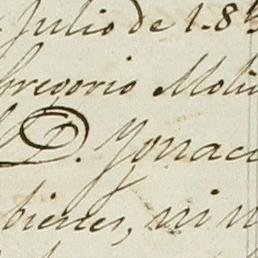 Julio de 1.85
Gregorio Moli
D. Ygnaci
bienes, ni n